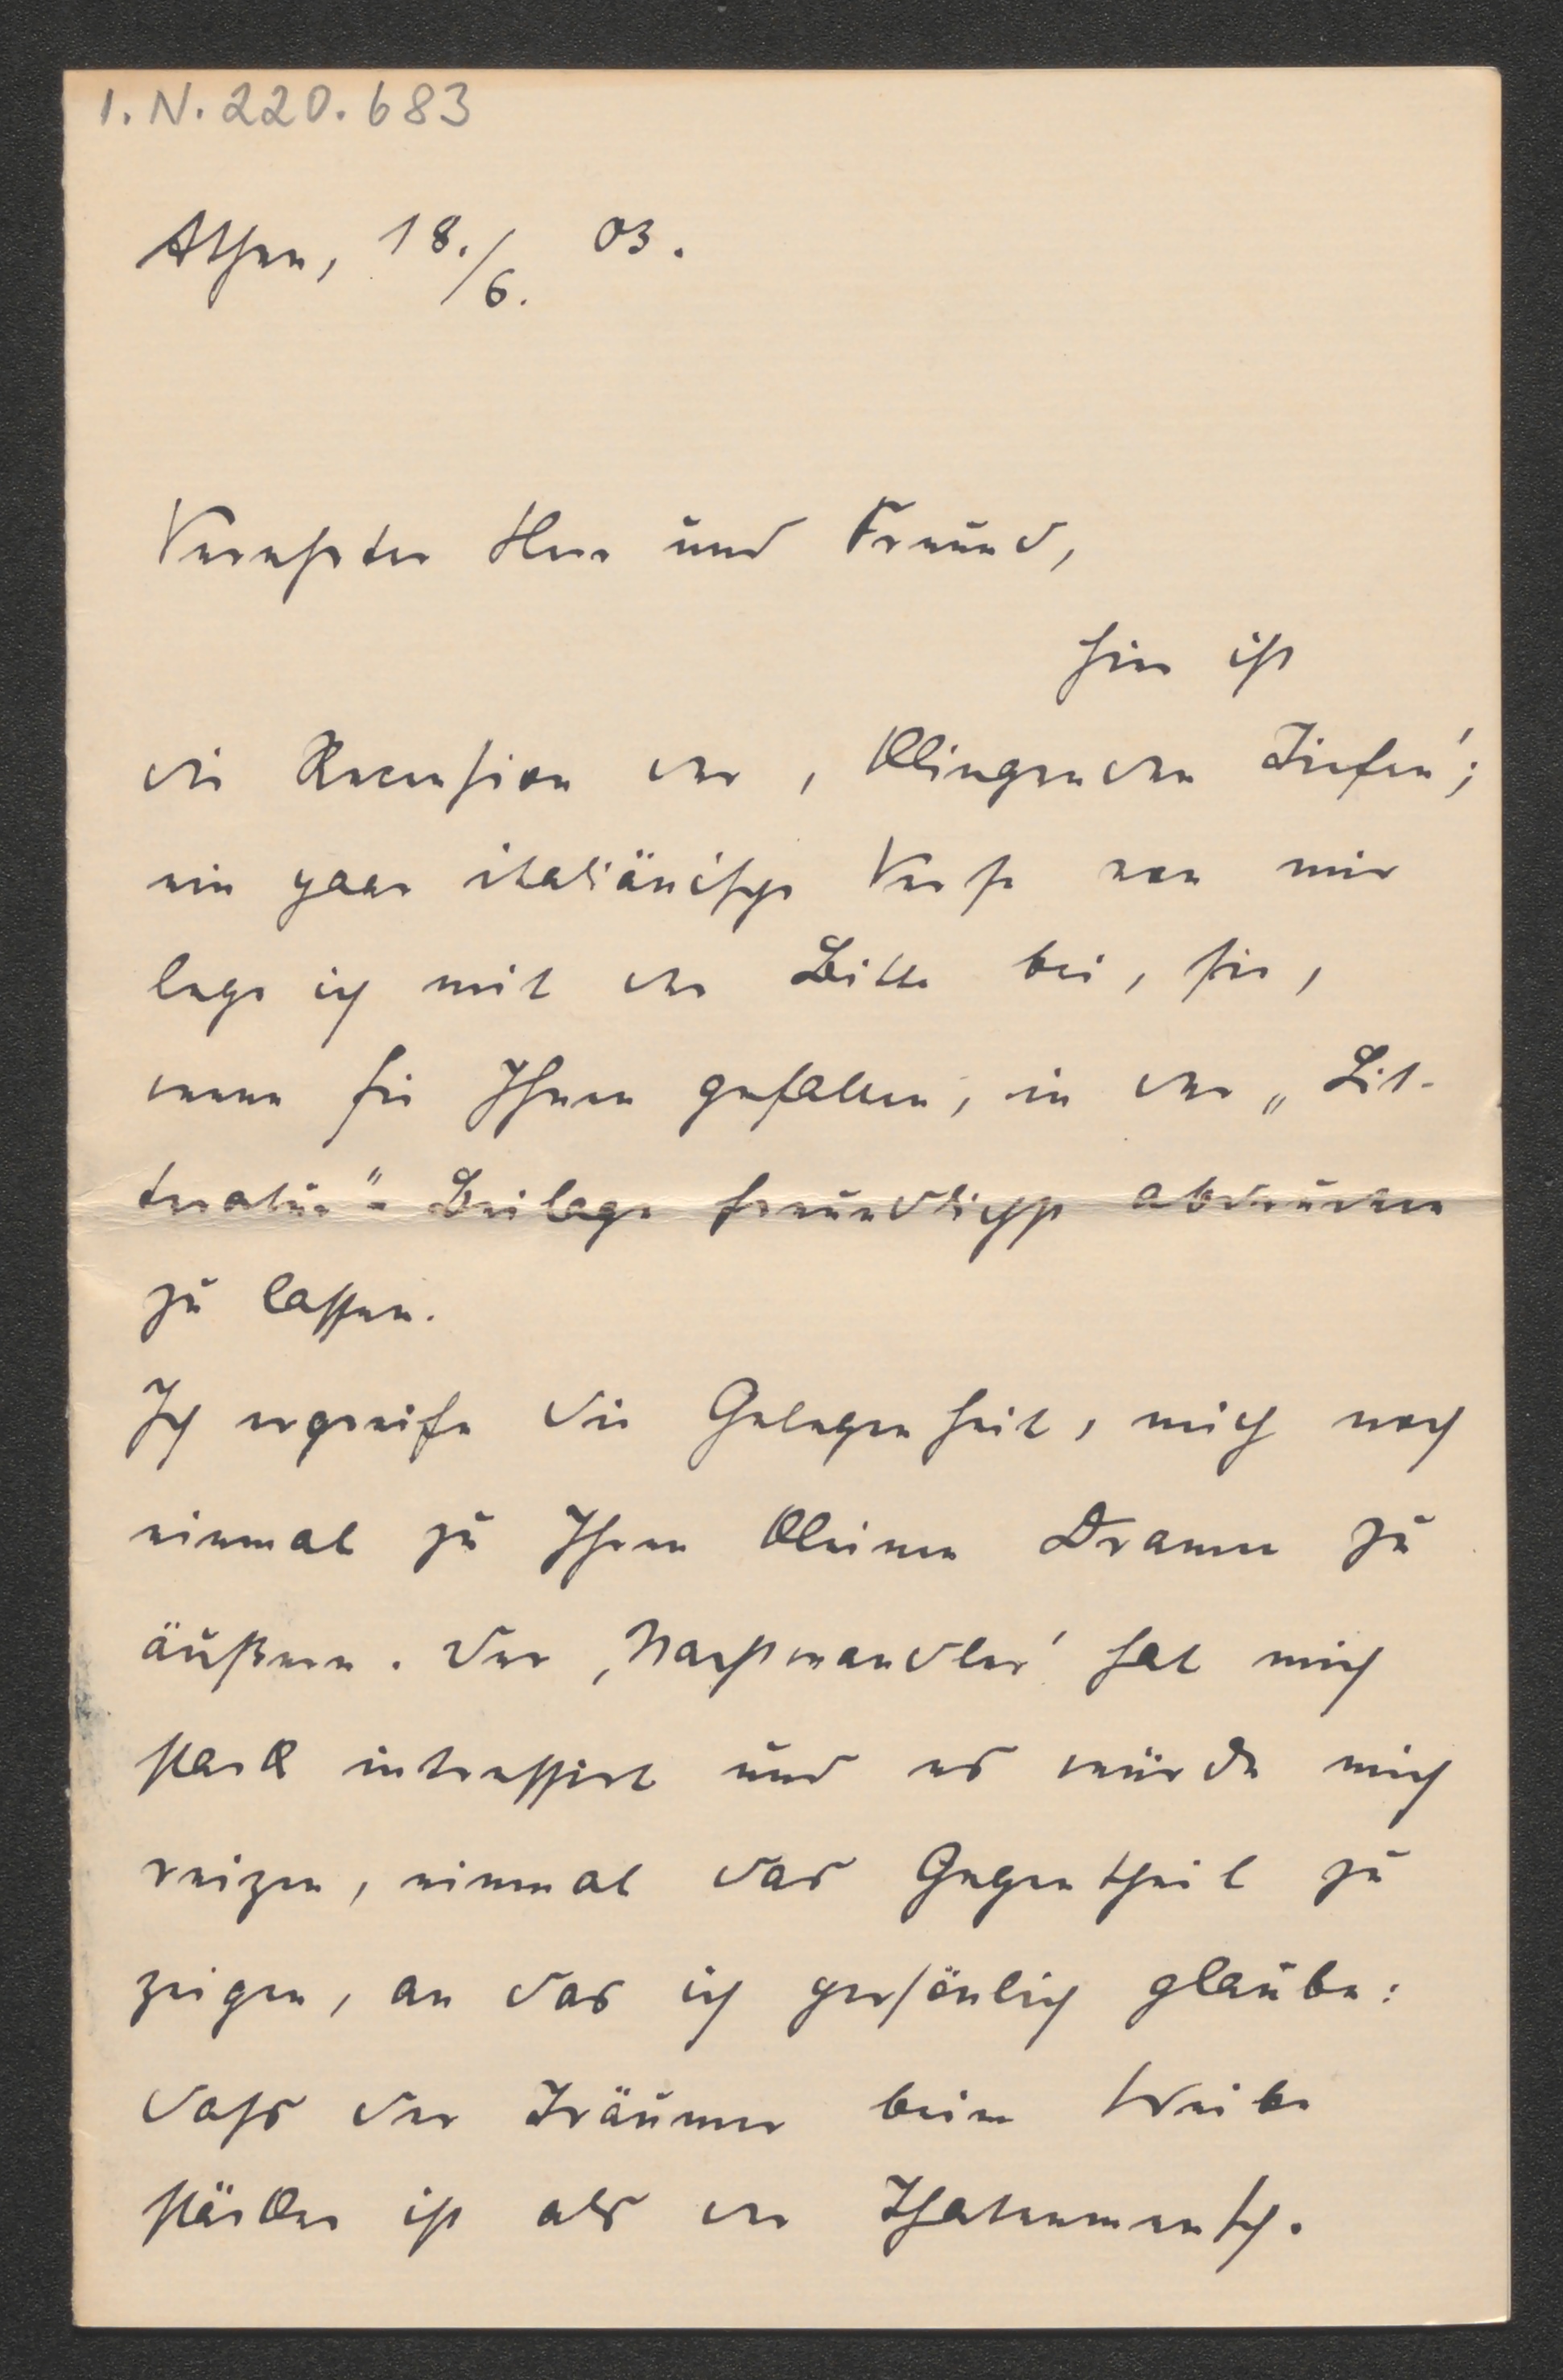 I.N. 220.683
Athen, 18./6. 03.
Verehrter Herr und Freund,
hier ist
die Recension der ‚Klingenden Tiefen‘;
ein paar italiänische Verse von mir
lege ich mit der Bitte bei, sie,
wenn sie Ihnen gefallen, in der „Lit-
teratur“-Beilage freundlichst abdrucken
zu lassen.
Ich ergreife die Gelegenheit, mich noch
einmal zu Ihren kleinen Dramen zu
äußern. Der ‚Nachtwandler‘ hat mich
stark interessirt und es würde mich
reizen, einmal das Gegentheil zu
zeigen, an das ich persönlich glaube:
dass der Träumer beim Weibe
stärker ist als der Thatenmensch.